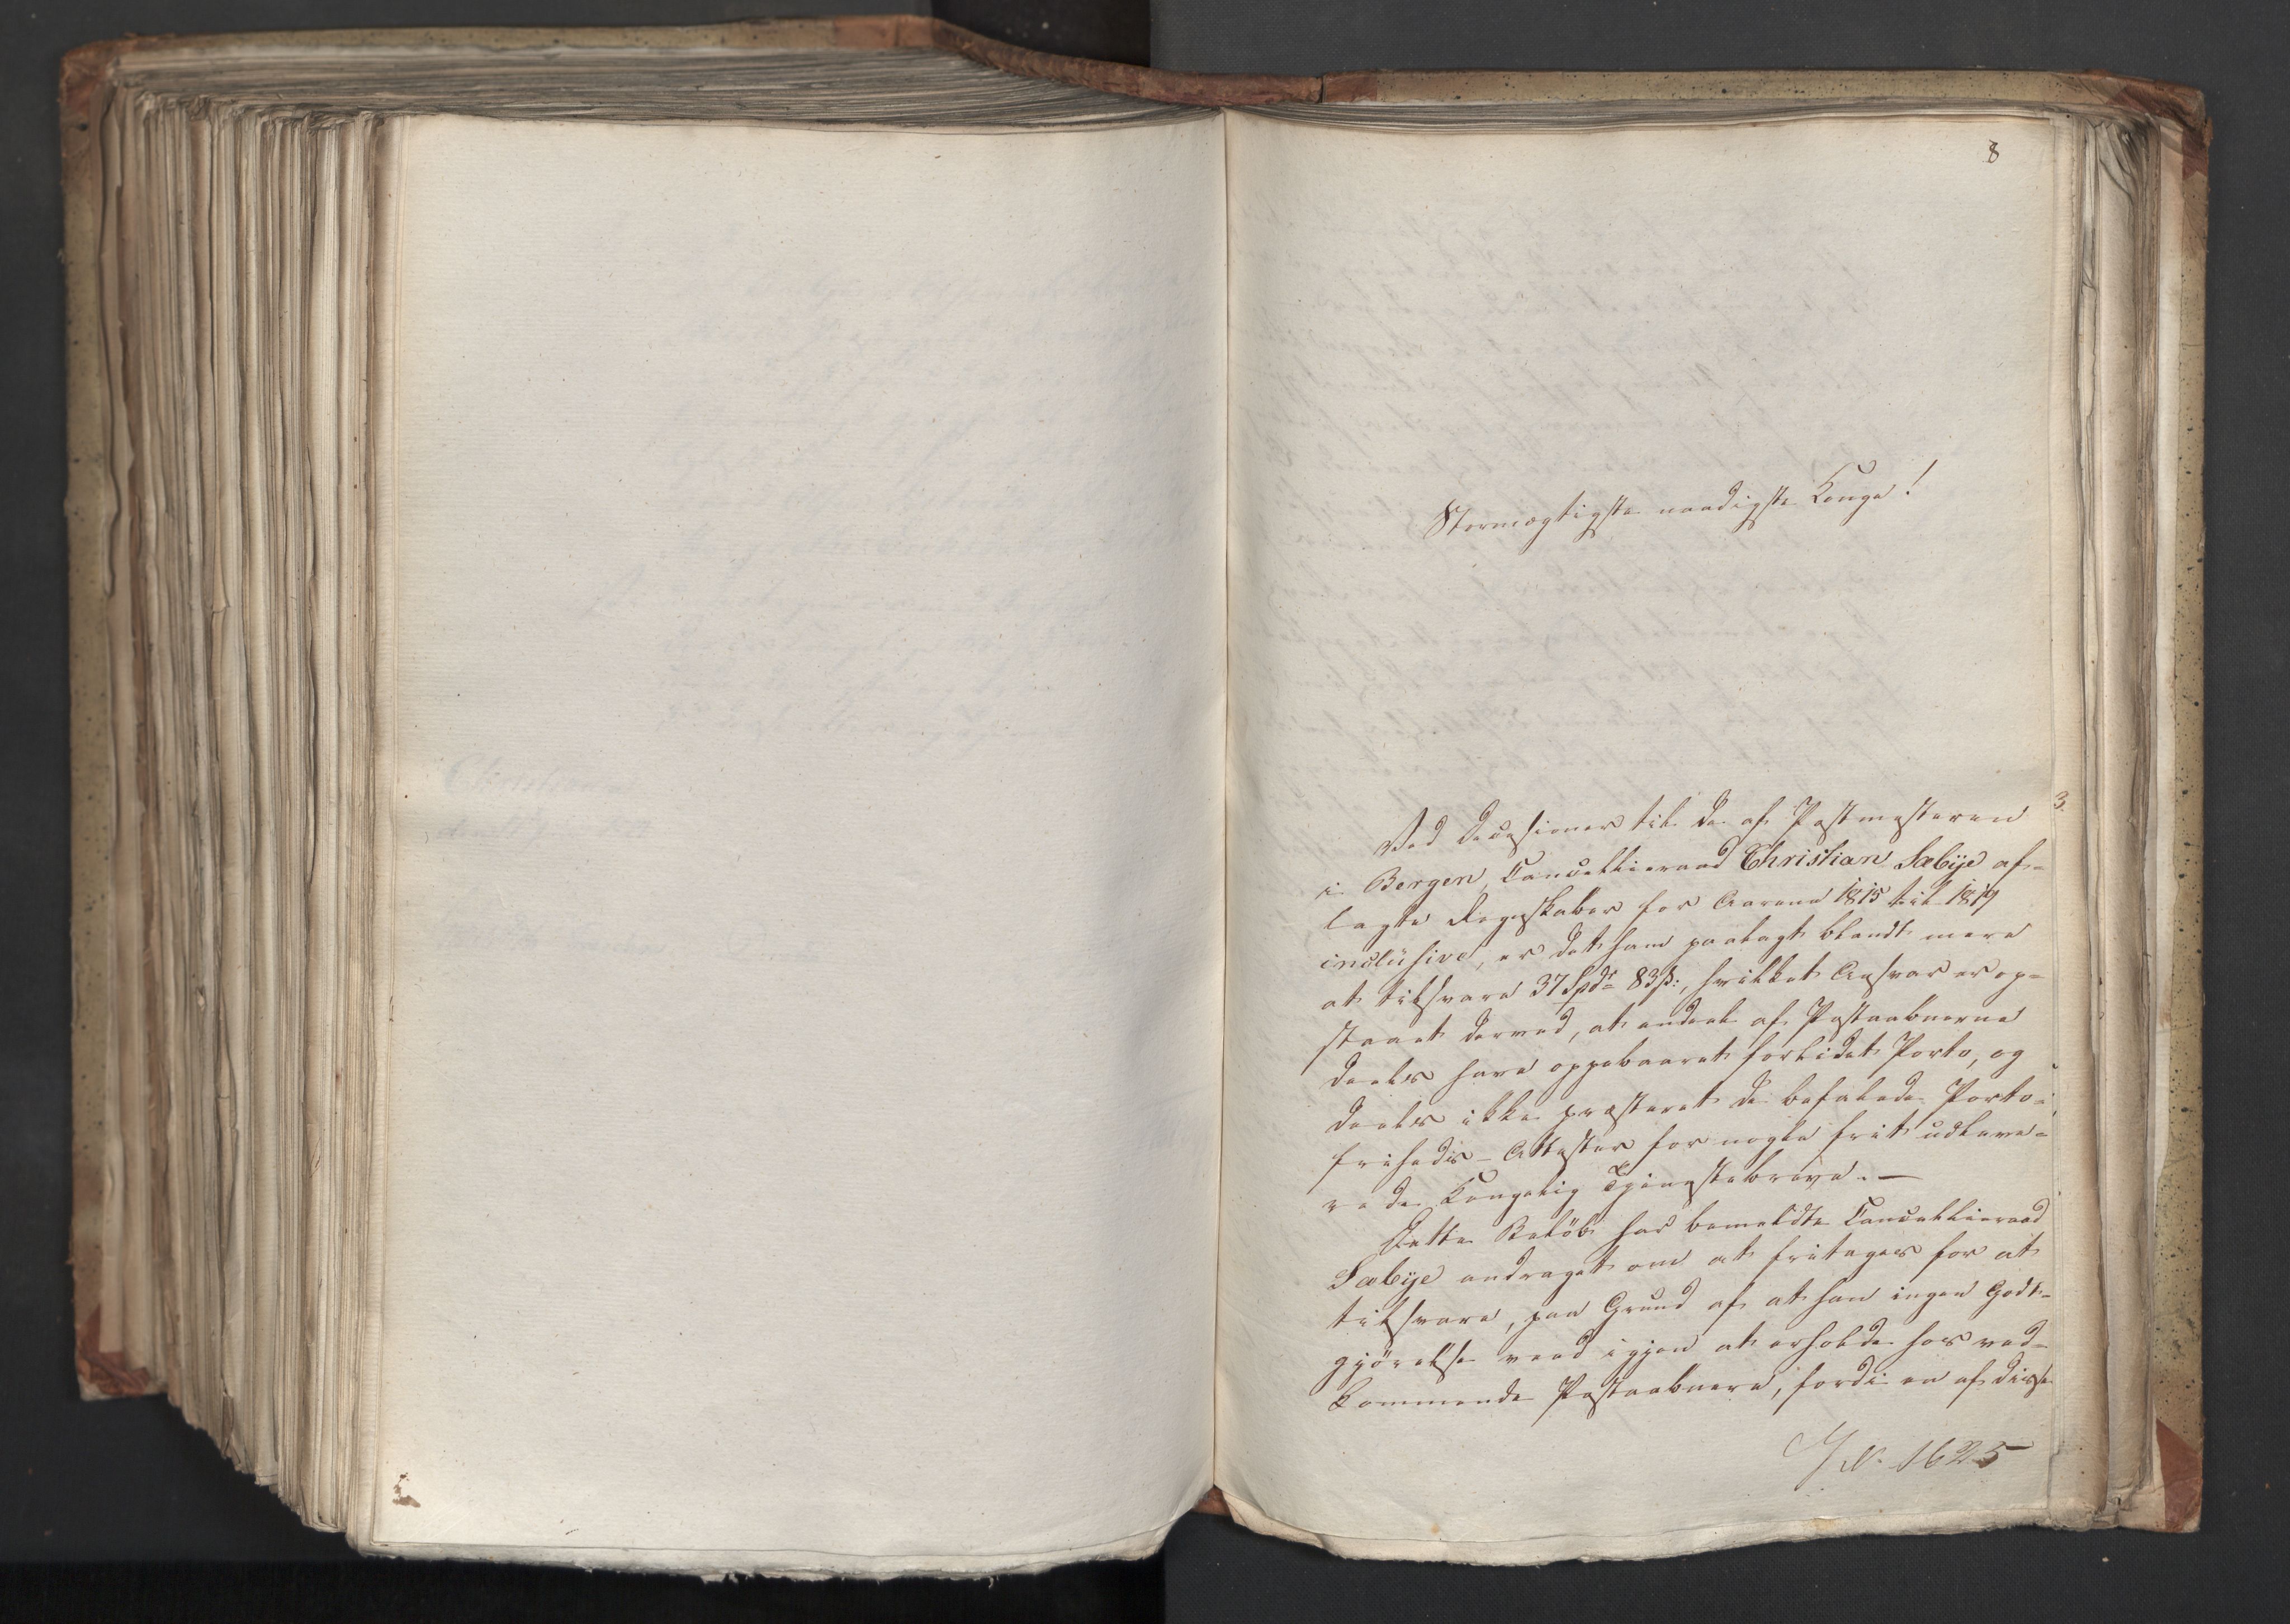 8
Stormægtigste naadigste Konge!
3.
Ved Decisioner til de af Postmesteren
i Bergen, Cancellieraad Christian Sæbye af-
lagte Regnskaber for Aarene 1815 til 1819
inclüsive, er det ham paalagt blandt mere
at tilsvare 37 Spdr 83 ß:, hvilket Ansvar er op-
staaet derved, at endeel af Postaabnerne
deels have oppebaaret forlidet Porto, og
deels ikke præsteret de befalede Porto-
friheds-Attester for nogle frit udleve-
rede Kongelig Tjenestebreve. —
Dette Beløb har bemeldte Cancellieraad
Sæbye andraget om at fritages for at
tilsvare, paa Grund af at han ingen Godt-
gjörelse veed igjen at erholde hos ved-
kommende Postaabnere, fordi en af disse
J N. 1625